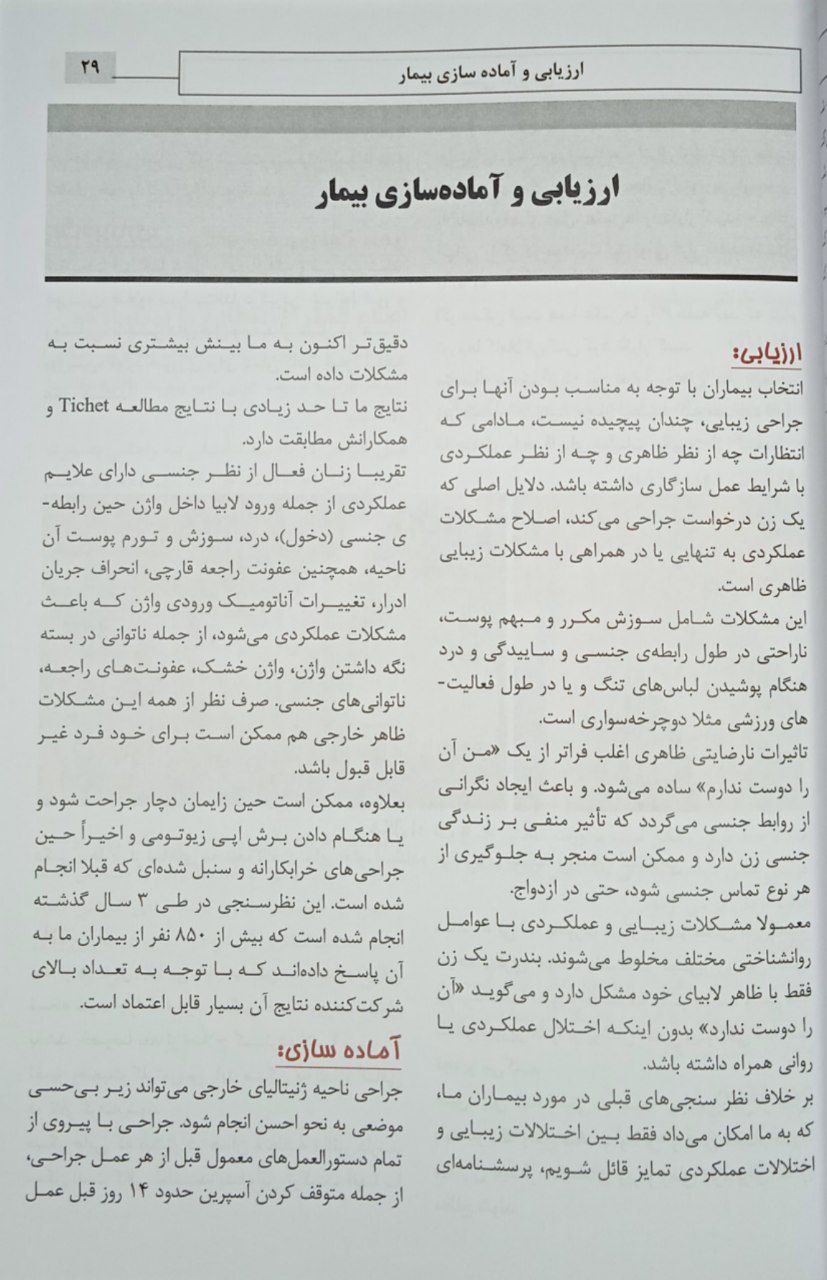 ارزیابی و آماده سازی بیمار
۲۹
ارزیابی و آماده‌سازی بیمار
ارزیابی:
انتخاب بیماران با توجه به مناسب بودن آنها برای
جراحی زیبایی، چندان پیچیده نیست، مادامی که
انتظارات چه از نظر ظاهری و چه از نظر عملکردی
با شرایط عمل سازگاری داشته باشد. دلایل اصلی که
یک زن درخواست جراحی می‌کند، اصلاح مشکلات
عملکردی به تنهایی یا در همراهی با مشکلات زیبایی
ظاهری است.
این مشکلات شامل سوزش مکرر و مبهم پوست،
ناراحتی در طول رابطه‌ی جنسی و ساییدگی و درد
هنگام پوشیدن لباس‌های تنگ و یا در طول فعالیت-
های ورزشی مثلا دوچرخه‌سواری است.
تاثیرات نارضایتی ظاهری اغلب فراتر از یک «من آن
را دوست ندارم» ساده می‌شود. و باعث ایجاد نگرانی
از روابط جنسی می‌گردد که تأثیر منفی بر زندگی
جنسی زن دارد و ممکن است منجر به جلوگیری از
هر نوع تماس جنسی شود، حتی در ازدواج.
معمولا مشکلات زیبایی و عملکردی با عوامل
روانشناختی مختلف مخلوط می‌شوند. بندرت یک زن
فقط با ظاهر لابیای خود مشکل دارد و می‌گوید «آن
را دوست ندارد» بدون اینکه اختلال عملکردی یا
روانی همراه داشته باشد.
بر خلاف نظر سنجی‌های قبلی در مورد بیماران ما،
که به ما امکان می‌داد فقط بین اختلالات زیبایی و
اختلالات عملکردی تمایز قائل شویم، پرسشنامه‌ای
دقیق‌تر اکنون به ما بینش بیشتری نسبت به
مشکلات داده است.
نتایج ما تا حد زیادی با نتایج مطالعه Tichet و
همکارانش مطابقت دارد.
تقریبا زنان فعال از نظر جنسی دارای علایم
عملکردی از جمله ورود لابیا داخل واژن حین رابطه-
ی جنسی (دخول)، درد، سوزش و تورم پوست آن
ناحیه، همچنین عفونت راجعه قارچی، انحراف جریان
ادرار، تغییرات آناتومیک ورودی واژن که باعث
مشکلات عملکردی می‌شود، از جمله ناتوانی در بسته
نگه داشتن واژن، واژن خشک، عفونت‌های راجعه،
ناتوانی‌های جنسی. صرف نظر از همه این مشکلات
ظاهر خارجی هم ممکن است برای خود فرد غیر
قابل قبول باشد.
بعلاوه، ممکن است حین زایمان دچار جراحت شود و
یا هنگام دادن برش اپی زیوتومی و اخیراً حین
جراحی‌های خرابکارانه و سنبل شده‌ای که قبلا انجام
شده است. این نظرسنجی در طی ۳ سال گذشته
انجام شده است که بیش از ۸۵۰ نفر از بیماران ما به
آن پاسخ داده‌اند که با توجه به تعداد بالای
شرکت‌کننده نتایج آن بسیار قابل اعتماد است.
آماده سازی:
جراحی ناحیه ژنیتالیای خارجی می‌تواند زیر بی‌حسی
موضعی به نحو احسن انجام شود. جراحی با پیروی از
تمام دستورالعمل‌های معمول قبل از هر عمل جراحی،
از جمله متوقف کردن آسپرین حدود ۱۴ روز قبل عمل